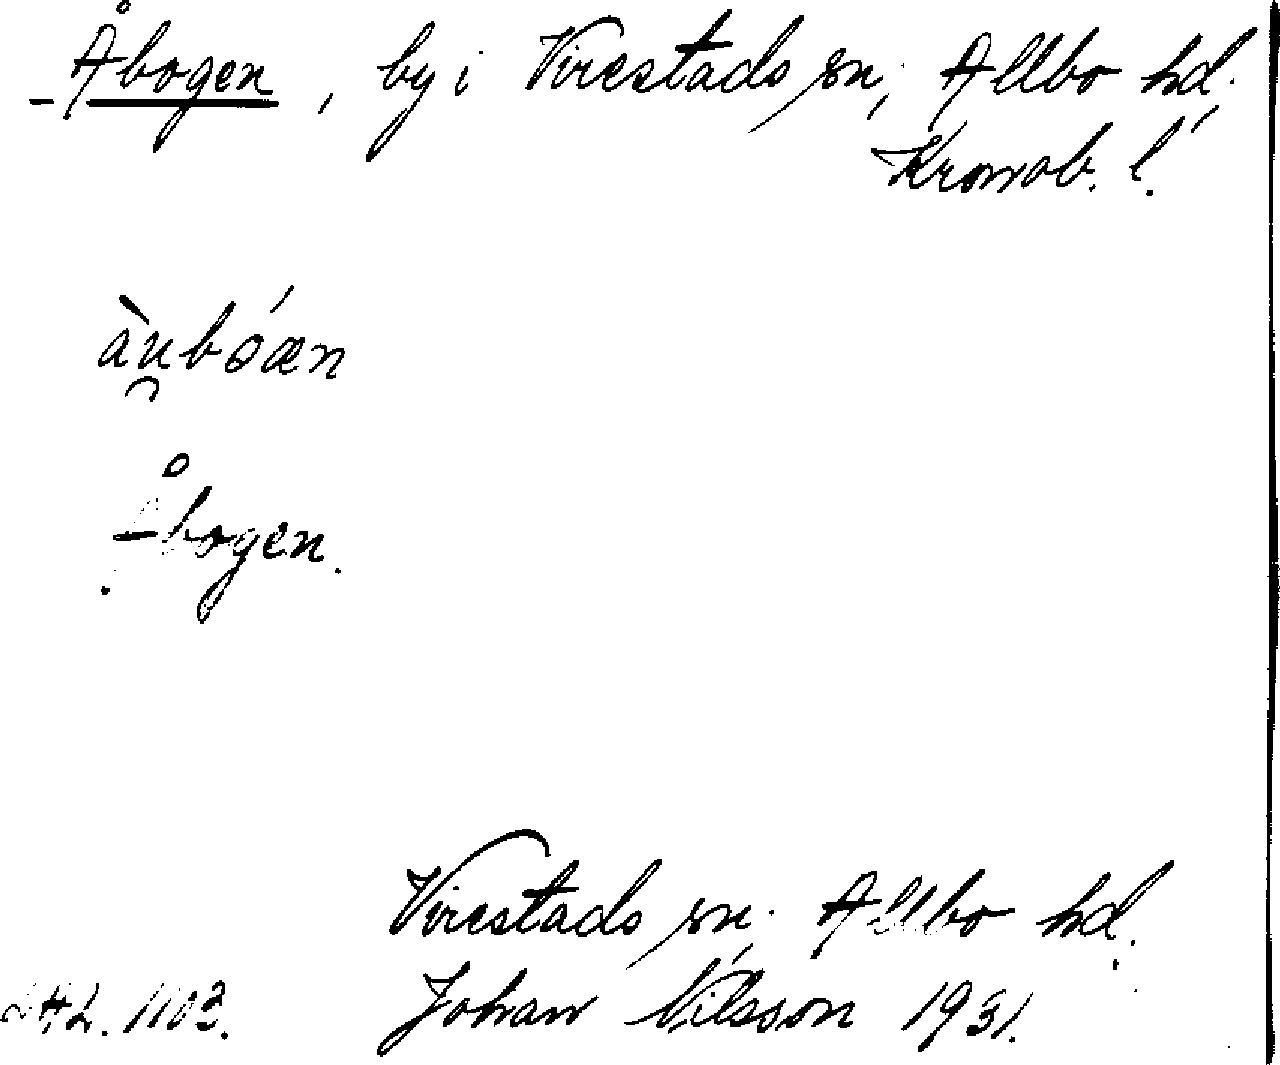 Åbogen, by i Virestads sn, Allbo hd,
Kronob. l.
àu̯bóæn
Åbogen.
Virestads sn, Allbo hd.
1103. Johan Nilsson 1931.